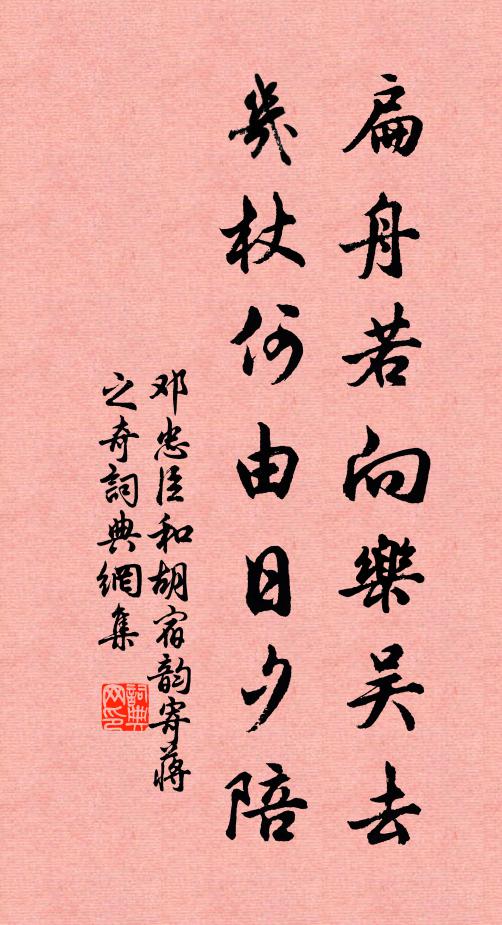 扁舟若向樂吴去
几杖何由日夕陪
邓忠臣和胡宿韵寄蔣
之奇詞典網集
詞典网印